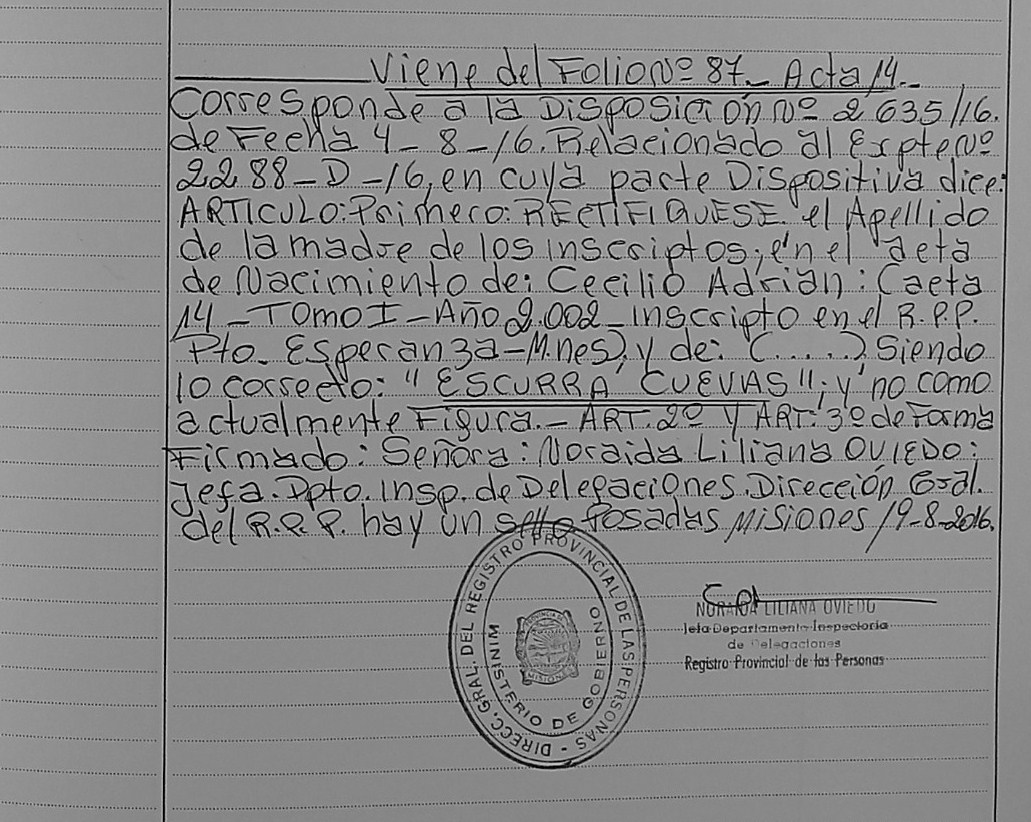 Viene del Folio Nº 87_ Acta 14_
Corresponde a la Disposición Nº 2635/16.
de Fecha 4-8-16. Relacionado al Expte Nº
2288-D-16, en cuya parte Dispositiva dice:
ARTICULO: Primero: RECTIFIQUESE el Apellido
de la madre de los inscriptos; en el acta
de Nacimiento de: Cecilio Adrian: (acta
14_TOMO I_Año 2.002_inscripto en el R.P.P.
Pto. Esperanza-M.nes), y de: (.....) Siendo
lo correcto: "ESCURRA CUEVAS"; y no como
actualmente Figura._ART. 2º Y ART: 3º de Forma
Firmado: Señora: Noraida Liliana OVIEDO:
Jefa. Dpto. Insp. de Delegaciones. Dirección Gral.
del R.P.P. hay un sello Posadas Misiones 19-8-2016.
DIRECC. GRAL. DEL REGISTRO PROVINCIAL DE LAS PERSONAS -
MINISTERIO DE GOBIERNO
MISIONES
NORAIDA LILIANA OVIEDO
Jefa Departamento Inspectoria
de Delegaciones
Registro Provincial de las Personas